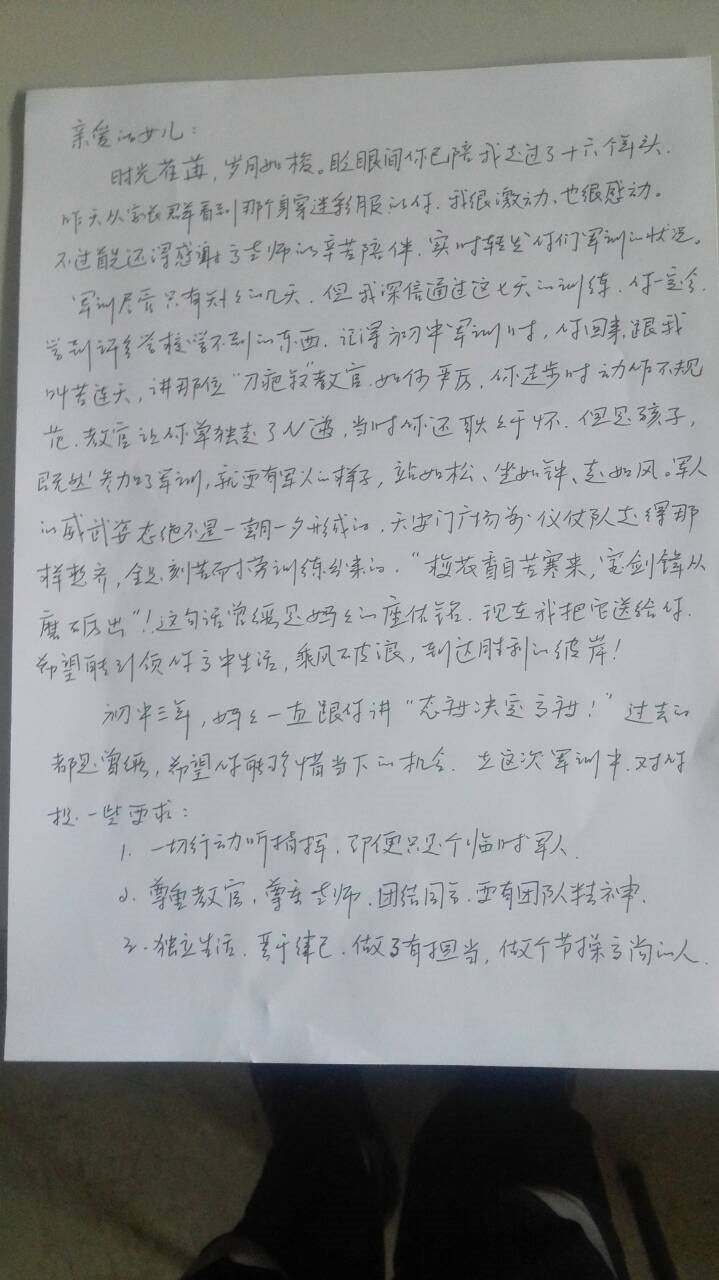 亲爱的女儿：
时光荏苒，岁月如梭。眨眼间你已陪我走过了十六个年头．
昨天从家长群看到那个身穿迷彩服的你．我很激动，也很感动。
不过首先还得感谢高老师的辛苦陪伴．实时转发你们军训的状况。
军训尽管只有短短的几天．但我深信通过这七天的训练．你一定会
学到许多学校学不到的东西．记得初中军训时，你回来跟我
叫苦连天，讲那位“刀疤叔”教官如何严厉，你走步时动作不规
范．教官让你单独走了N遍，当时你还耿耿于怀．但是孩子，
既然参加了军训，就要有军人的样子，站如松、坐如钟、走如风。军人
的威武姿态绝不是一朝一夕形成的．天安门广场前仪仗队走得那
样整齐，全是刻苦耐劳训练出来的．“梅花香自苦寒来，宝剑锋从
磨砺出”！这句话曾经是妈妈的座佑铭．现在我把它送给你．
希望能引领你高中生活，乘风破浪，到达胜利的彼岸！
初中三年，妈妈一直跟你讲“态度决定高度！”过去的
都是曾经，希望你能珍惜当下的机会．在这次军训中．对你
提一些要求：
1. 一切行动听指挥．即便只是个临时军人．
2. 尊重教官，尊重老师．团结同学．要有团队精神．
3. 独立生活．严于律己．做事有担当，做个节操高尚的人．